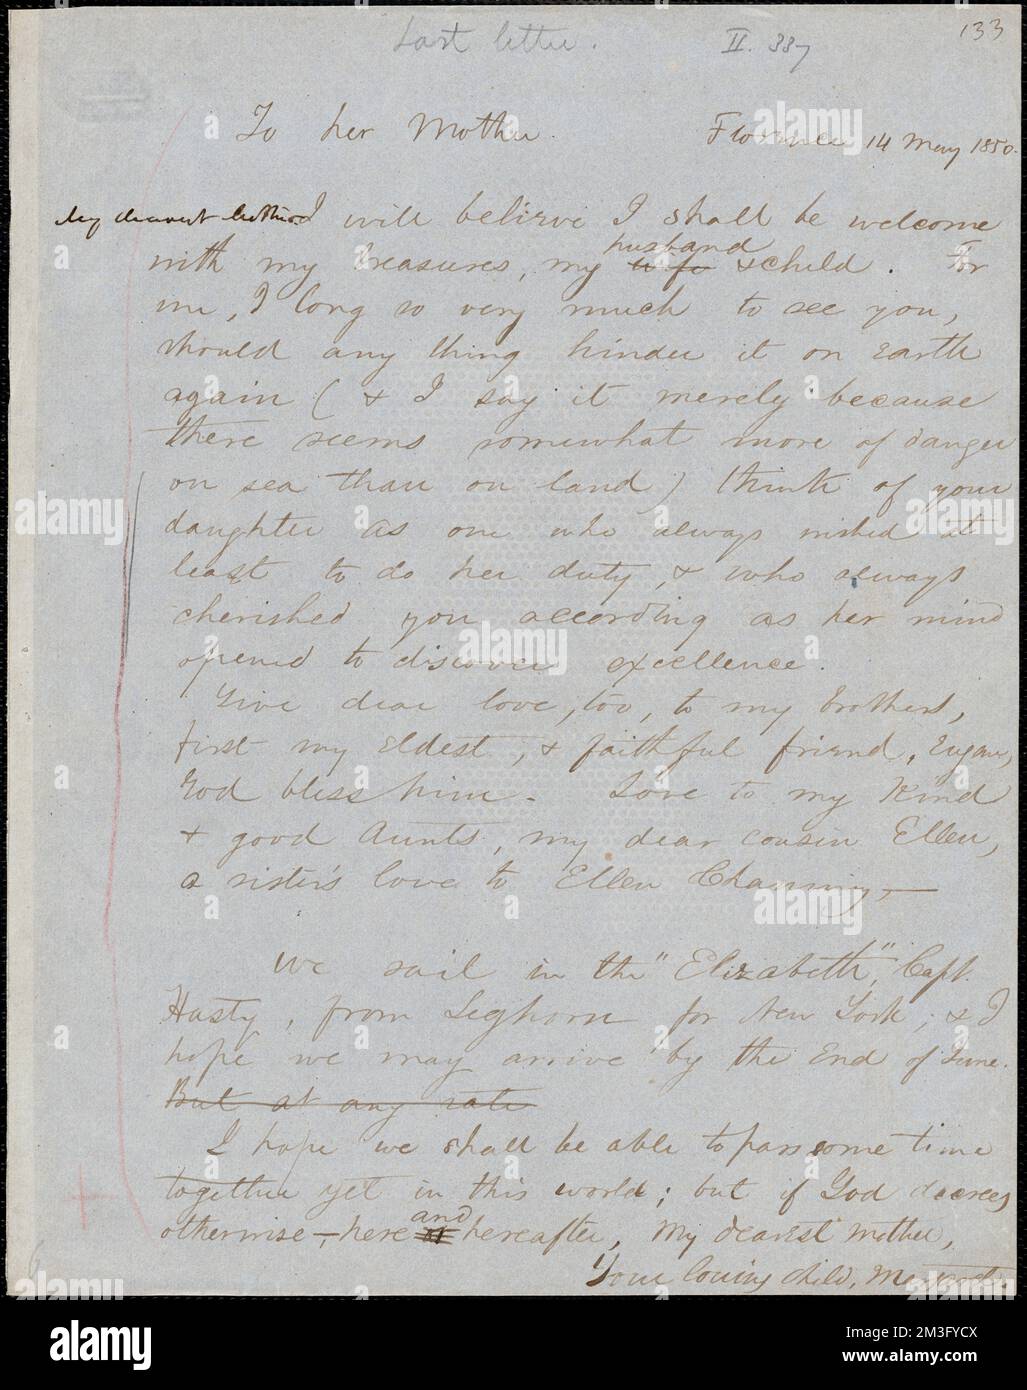 133
Last letter.
II. 387
To her Mother.
Florence 14 May 1850.
My dearest Mother I will believe I shall be welcome
with my treasures, my wife husband & child. For
me, I long so very much to see you,
should any thing hinder it on Earth
again ( & I say it merely because
there seems somewhat more of danger
on sea than on land ) think of your
daughter as one who always wished at
least to do her duty, & who always
cherished you according as her mind
opened to discover excellence.
Give dear love, too, to my brothers,
first my Eldest, & faithful friend, Eugene,
God bless him. Love to my Kind
& good Aunts, my dear cousin Ellen,
a sister's love to Ellen Channing, —
We sail in the "Elizabeth", Capt.
Hasty, from Leghorn for New York; & I
hope we may arrive by the End of June.
But at any rate
I hope we shall be able to pass some time
together yet in this world; but if God decrees
otherwise, — here and hereafter, My dearest mother,
Your loving child, Margaret.
alamy
alamy
Image ID: 2M3FYCX
www.alamy.com